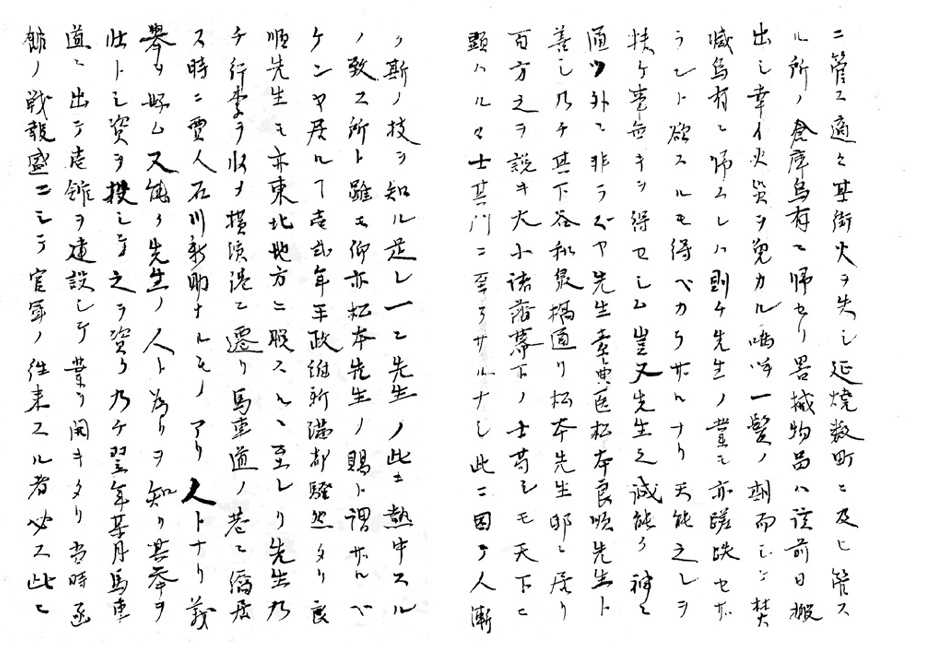 ニ管ス適々某街火ヲ失シ延焼数町ニ及ヒ管ス
ル所ノ倉庫烏有ニ帰セリ器械物品ハ該前日搬
出シ幸イ火災ヲ免カル嗚呼一髪ノ剤而シテ焚
滅烏有ニ帰スレハ則チ先生ノ業モ亦蹉跌セザ
ラント欲スルモ得ベカラサルナリ天能之レヲ
扶ケ幸無キヲ得セシム豈又先生之誠能ク神ニ
通ツ外ニ非ラズヤ先生素典医松本良順先生ト
善シ乃チ其下谷和泉橋通リ松本先生邸ニ居リ
百方之ヲ説キ大小諸藩幕下ノ士苟シモ天下ニ
顕ハル々士其門ニ至ラサルハナシ此ニ因テ人漸
ク斯ノ技ヲ知ル是レ一ニ先生ノ此ニ熱中スル
ノ致ス所ト雖モ仰亦松本先生ノ賜ト謂サルベ
ケンヤ居ルテ壱弐年王政維新満都騒然タリ良
順先生モ亦東北地方ニ脱スルニ至レリ先生乃
チ行李ヲ収メ横濱港ニ遷リ馬車道ノ巷ニ僑居
ス時ニ賈人石川新助ナルモノアリ人トナリ義
挙ヲ好ム又能ク先生ノ人ト為リヲ知リ其挙ヲ
壮トシ資ヲ投シテ之ヲ資ク乃チ翌年某月馬車
道ニ出テ壱館ヲ建設シテ業ヲ開キタリ当時函
館ノ戦報盛ニシテ官軍ノ往来スル者必ス此ニ